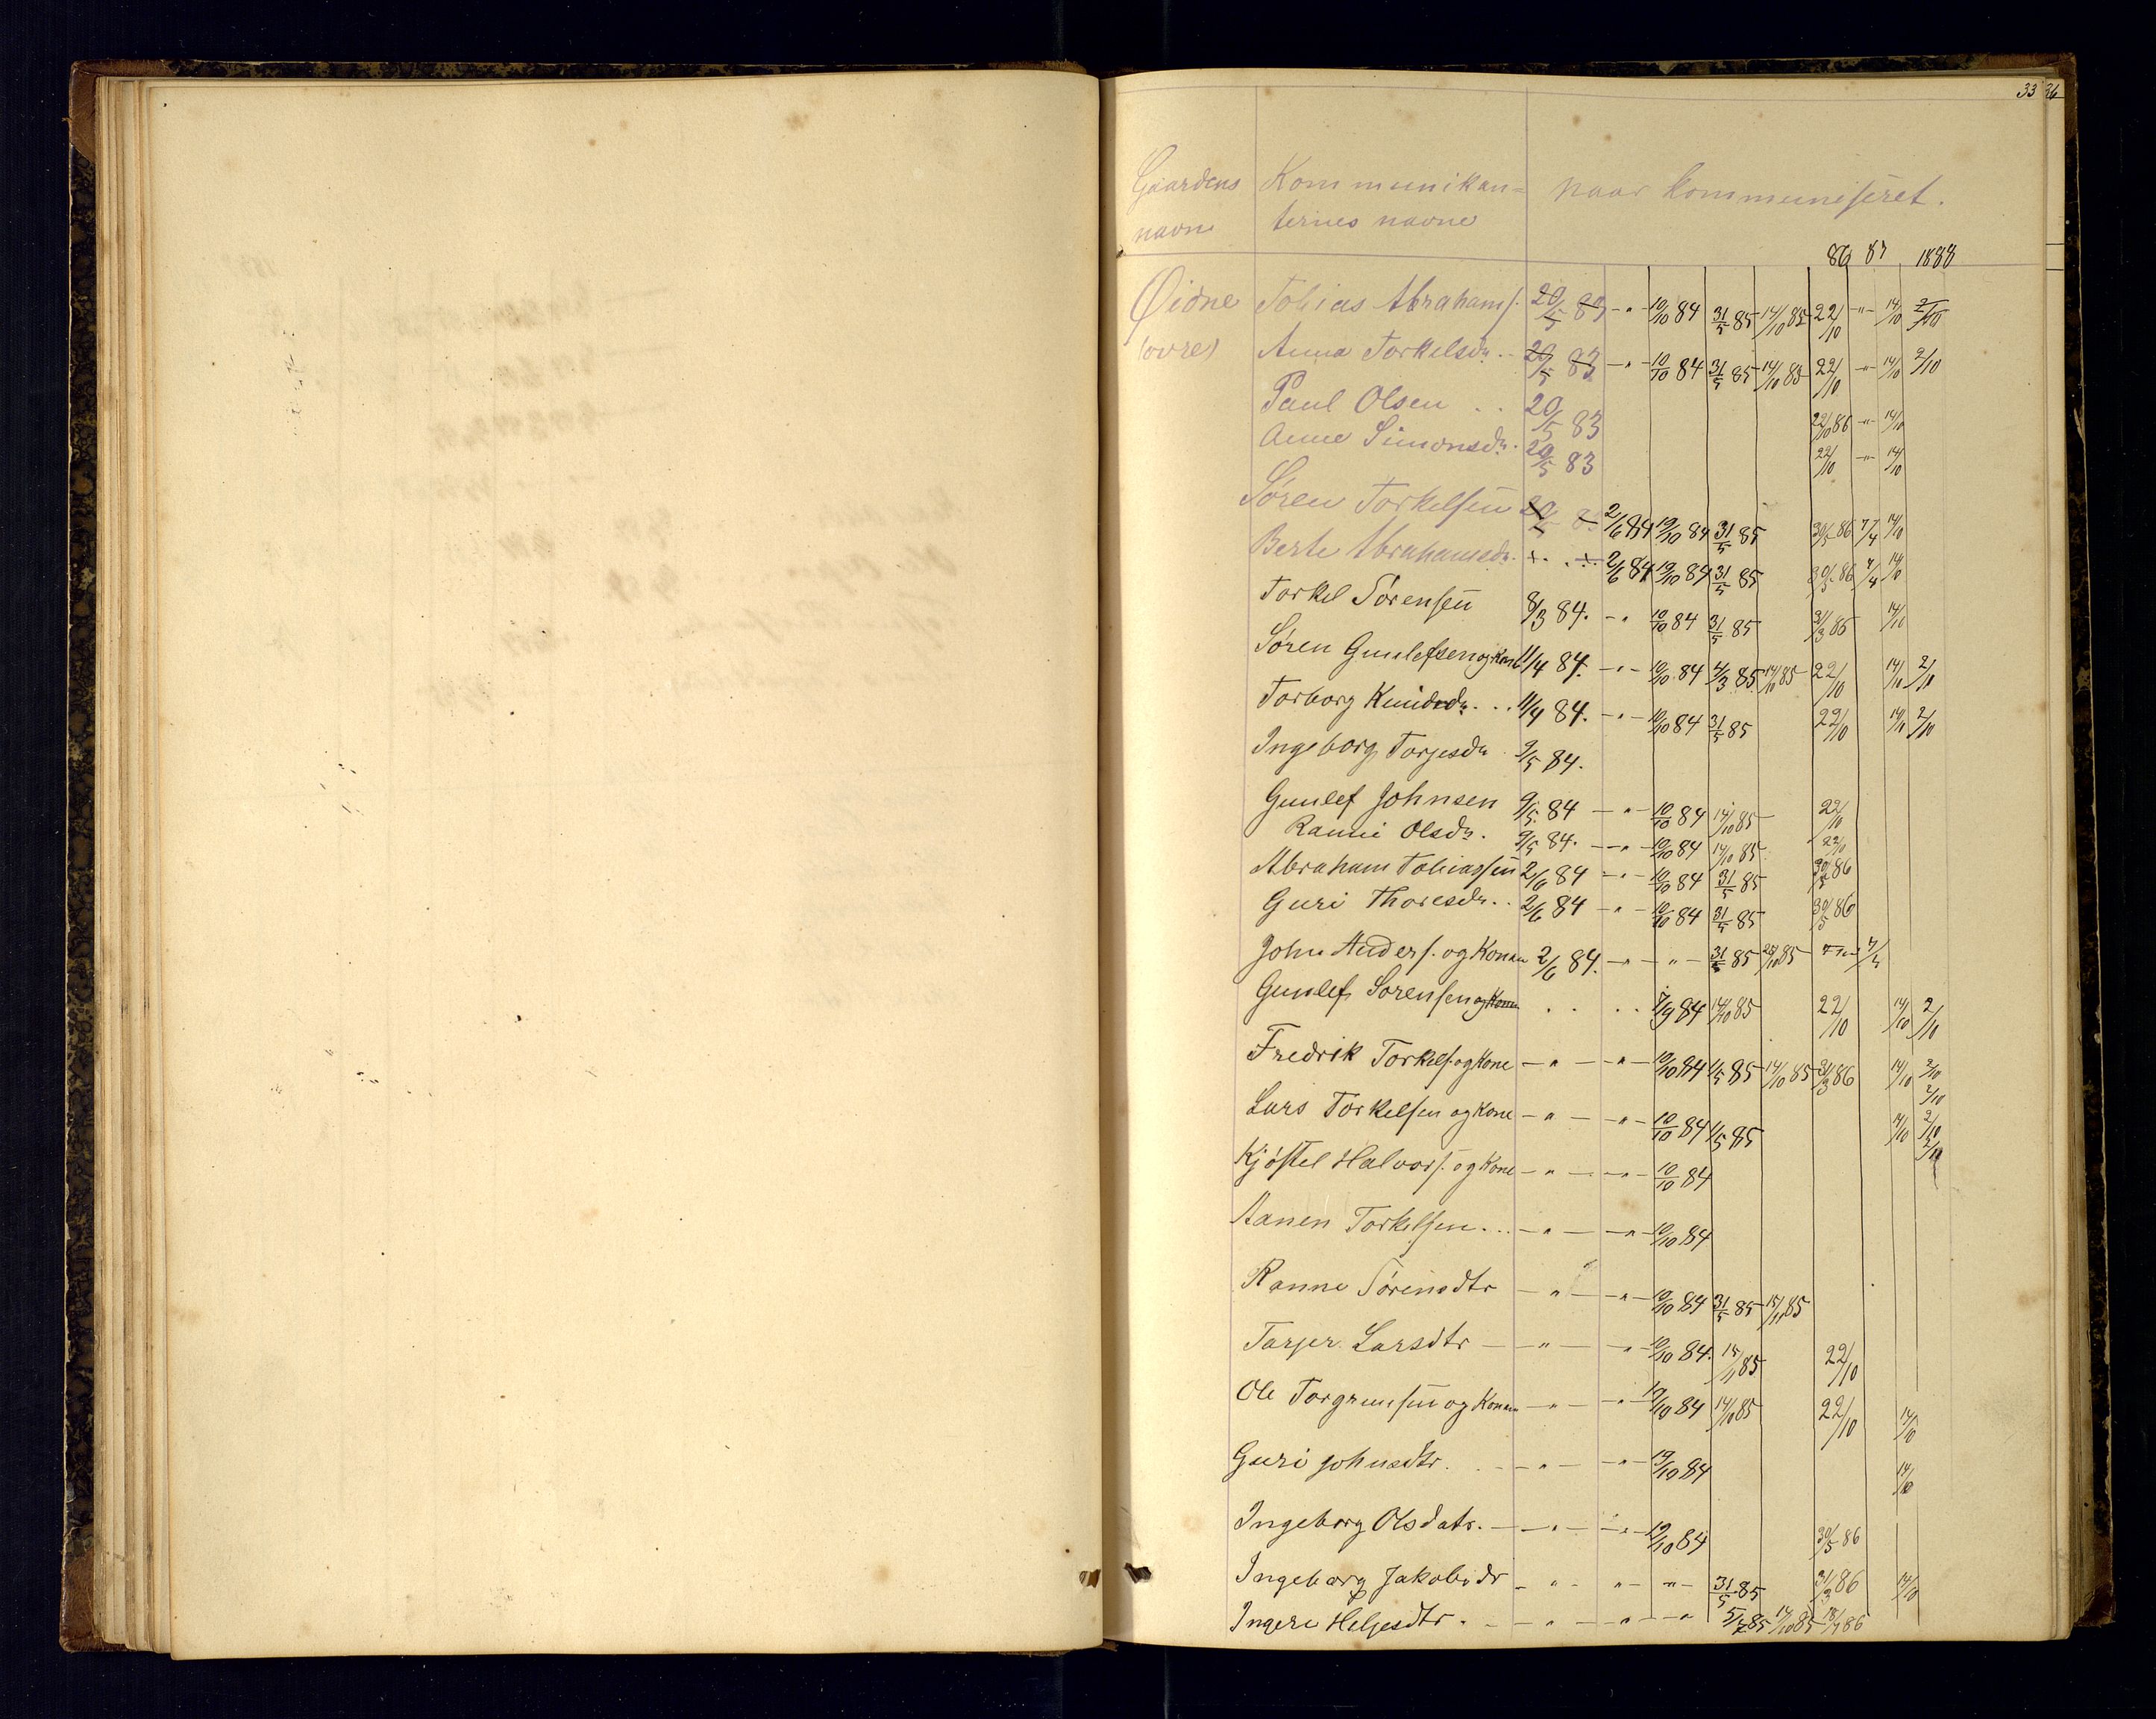 33 34
Gaardens navn Kommunikanternes navne naar kommuniseret.
86 87 1888
Øidne Tobias Abrahams. 20/5 83 -"- 10/10 84 31/5 85 14/10 85 22/10 -"- 14/10 2/10
(øvre) Anna Torkelsdr. 20/5 83 -"- 10/10 84 31/5 85 14/10 85 22/10 -"- 14/10 2/10
Paul Olsen . . 20/5 83 22/10 86 -"- 14/10
Anne Simonsdr. 20/5 83 22/10 -"- 14/10
Søren Torkelsen 20/5 2/6 84 10/10 84 31/5 85 30/5 86 7/4 14/10
Berte Abrahamsdr. 2/6 84 10/10 84 31/5 85 30/5 86 7/4 14/10
Torkel Sørensen 8/3 84. -"- 10/10 84 31/5 85 14/10
Søren Gunlefsen og Kone 11/4 84. -"- 10/10 84 4/3 85 14/10 85 22/10 14/10 2/10
Torborg Knudsdr. . . 11/4 84. -"- 10/10 84 31/5 85 22/10 14/10 2/10
Ingeborg Torjesdr 9/5 84.
Gunlef Johnsen 9/5 84 -"- 10/10 84 14/10 85 22/10
Ranni Olsdr. 9/5 84. -"- 10/10 84 14/10 85 22/10
Abraham Tobiassen 2/6 84 -"- 10/10 84 31/5 85 30/5 86
Guri Thoresdr. . 2/6 84 -"- 10/10 84 31/5 85 30/5 86
John Anders. og Konen 2/6 84. -"- " - 31/5 85 85 7/4
Gunlef Sørensen og Konen . . . . 7/9 84 14/10 85 22/10 14/10 2/10
Fredrik Torkels. og Kone -"- -"- 10/10 84 1/5 85 14/10 85 31/3 86 14/10 2/10
2/10
Lars Torkelsen og Kone -"- -"- 10/10 84 1/5 85 14/10 2/10
2/10
Kjøstel Halvors. og Kone -"- -"- 10/10 84
Aanen Torkelsen. . . -"- -"- 10/10 84
Ranne Sørensdtr -"- -"- 10/10 84 31/5 85 15/11 85
Tarjer Larsdtr -"- -"- 10/10 84. 15/11 85 22/10
Ole Torgrimsen og Konen -"- -"- 10/10 84 14/10 85 22/10 14/10
Guri Johnsdtr. -"- -"- 19/10 84 14/10
Ingeborg Olsdatr. -"- -"- 19/10 84 30/5 86
Ingeborg Jakobsdr -"- "- -"- 31/5 85 31/3 86 14/10
Ingeri Heljesdtr. -"- -"- -" 5/7 85 14/10 85 86